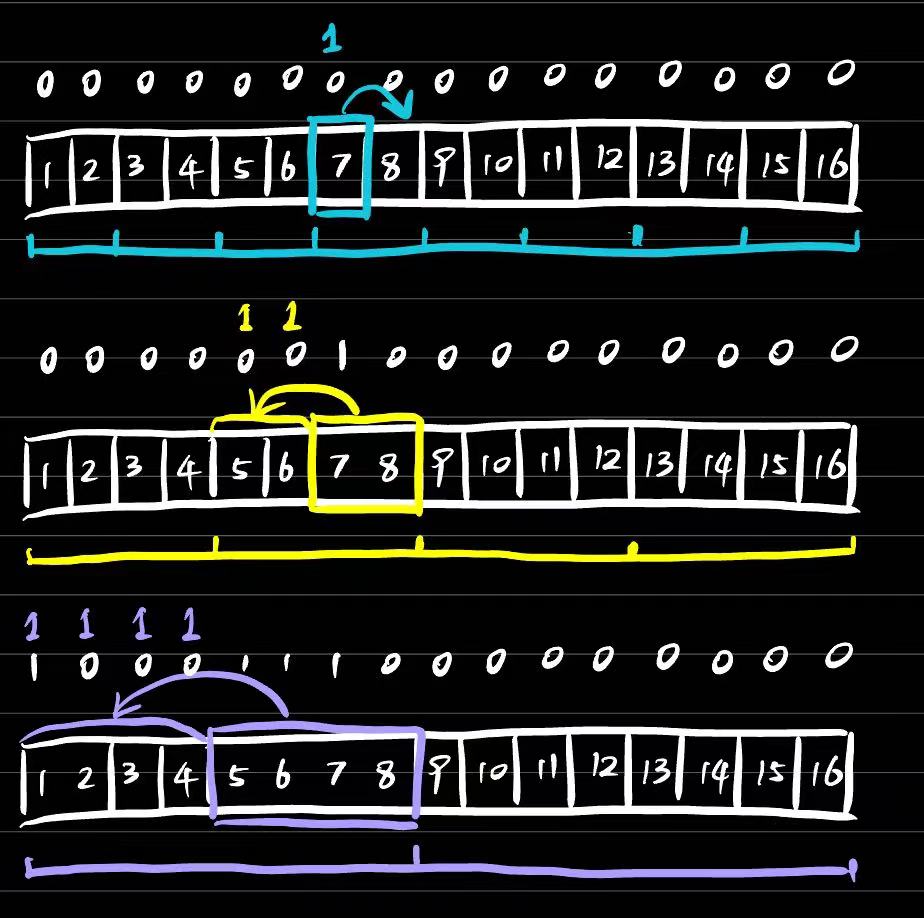 1
0 0 0 0 0 0 0 0 0 0 0 0 0 0 0 0
1 2 3 4 5 6 7 8 9 10 11 12 13 14 15 16
1 1
0 0 0 0 0 0 1 0 0 0 0 0 0 0 0 0
1 2 3 4 5 6 7 8 9 10 11 12 13 14 15 16
1 1 1 1
1 0 0 0 1 1 1 0 0 0 0 0 0 0 0 0
1 2 3 4 5 6 7 8 9 10 11 12 13 14 15 16